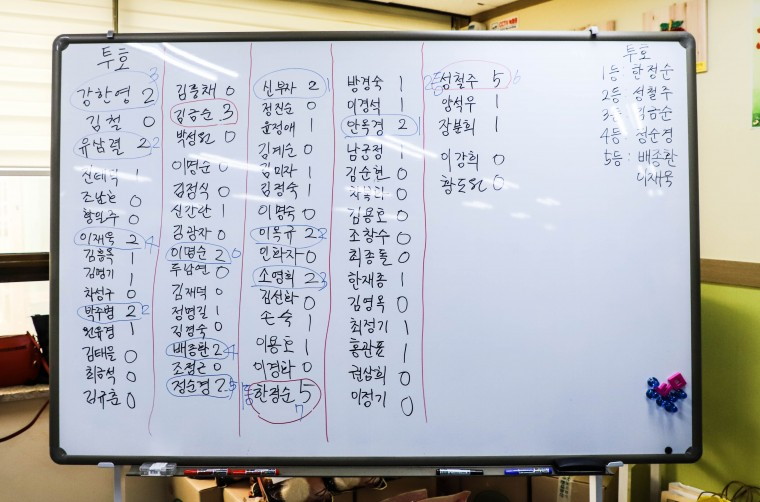 투호
강한영 2 3
김철 0
유남렬 2 2
신태식 1
조남훈 0
황의주 0
이재욱 2 4
김흥옥 1
김명기 1
차성구 0
박수명 2 2
원유경 1
김태을 0
최승석 0
김규훈 0
김종채 0
김금순 3
박성원 0
이명순 0
김정식 0
신간난 1
김광자 0
이명순 2 0
두남연 0
김재덕 0
정명길 1
김경숙 0
배종환 2 4
조정근 0
정순경 2 5
신부자 2 1
정진순 0
윤정애 1
김계순 0
김미자 1
김정숙 1
이명숙 0
이옥규 2 2
인화자 0
소영희 2 3
김선화 0
손숙 1
이용호 1
이경화 0
1등 한정순 5
7
방경숙 1
이경석 1
안옥경 2 1
남궁정 1
김순현 0
0
김용호 0
조창수 0
최종돌 0
한재종 1
김영옥 0
최정기 1
홍관표 1
권삼희 0
이정기 0
2등 성철주 5 6
양석우 1
장분희 1
이강희 0
황도원 0
투호
1등 한정순
2등 성철주
3등 김금순
4등 정순경
5등 배종환
이재욱